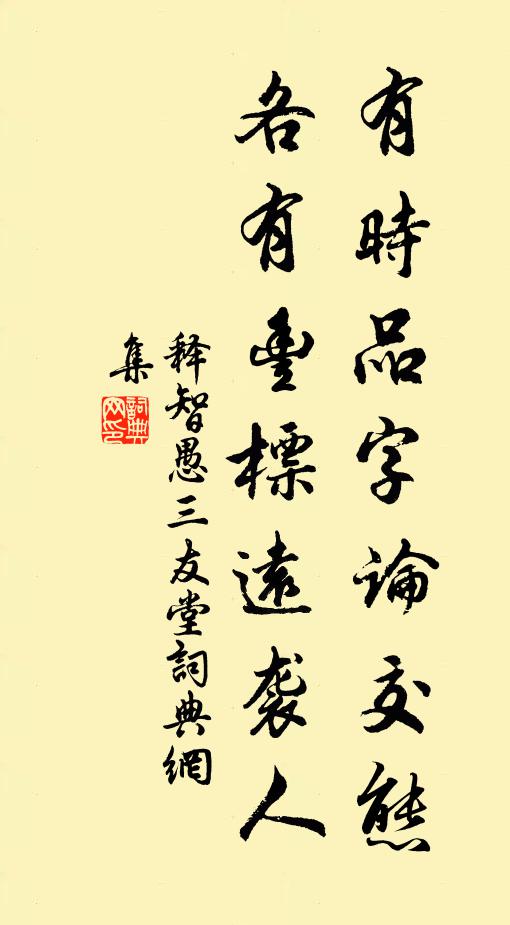 有時品字論交態
各有豐標遠袭人
释智愚三友堂詞典網
集
詞典網印